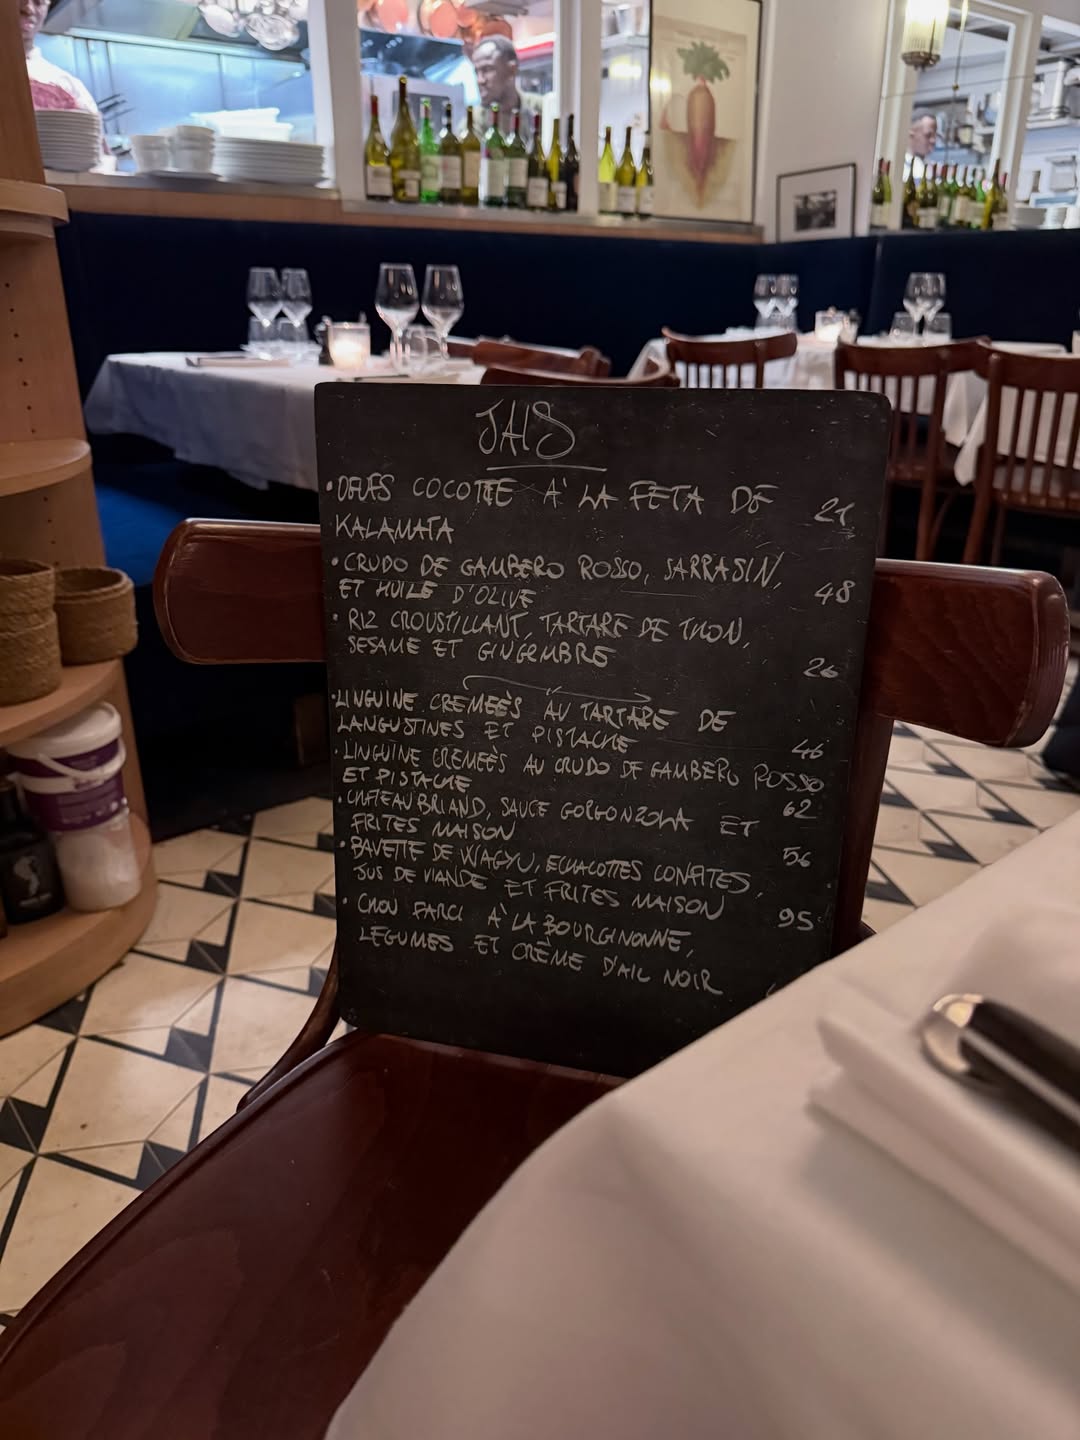 JAIS
• OEUFS COCOTTE À LA FETA DE 21
KALAMATA
• CRUDO DE GAMBERO ROSSO, SARRASIN,
ET HUILE D'OLIVE 48
• RIZ CROUSTILLANT, TARTARE DE THON,
SESAME ET GINGEMBRE 26
• LINGUINE CREMEÈS AU TARTARE DE
LANGUSTINES ET PISTACHE 46
• LINGUINE CREMEÈS AU CRUDO DE GAMBERO ROSSO
ET PISTACHE 62
• CHATEAUBRIAND, SAUCE GORGONZOLA ET
FRITES MAISON 56
• BAVETTE DE WAGYU, ECHALOTTES CONFITES,
JUS DE VIANDE ET FRITES MAISON 95
• CHOU FARCI À LA BOURGINONNE,
LEGUMES ET CRÈME D'AIL NOIR